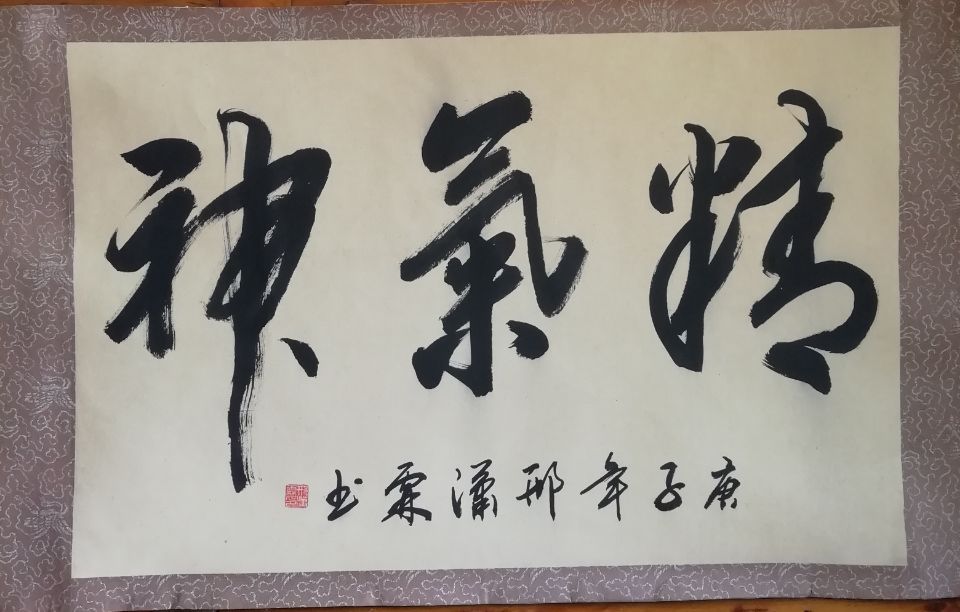 精氣神
庚子年邢瀟霖书